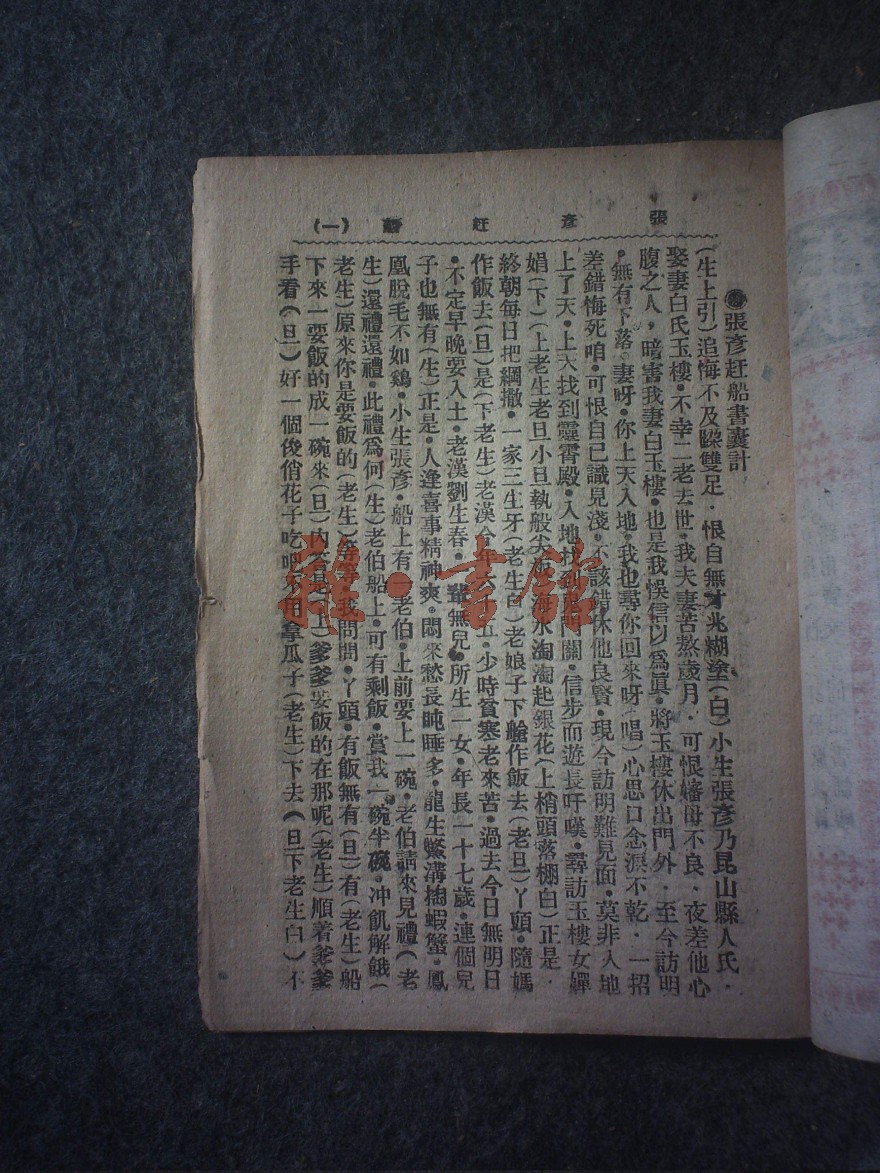 張彥赶船 (一)
張彥赶船書囊計
(生上引)追悔不及跺雙足．恨自無才兆糊塗(白)小生張彥乃昆山縣人氏．
娶妻白氏玉樓．不幸二老去世．我夫妻苦熬歲月．可恨嬸母不良．夜差他心
腹之人，暗害我妻白玉樓．也是我悞信以爲眞．將玉樓休出門外．至今訪明
．無有下落．妻呀．你上天入地．我也尋你回來呀(唱)心思口念淚不乾．一招
差錯悔死咱．可恨自己識見淺．不該錯休他良賢．現今訪明難見面．莫非入地
上了天．上天找到靈霄殿．入地找到 門關．信步而遊長吁嘆．尋訪玉樓女嬋
娟(下)(上老生老旦小旦執般尖 海水淘淘起銀花(上梢頭落棚白)正是．
終朝每日把綱撒．一家三生牙(老生白)老娘子下艙作飯去(老旦)丫頭．隨媽
作飯去(旦)是(下老生)老漢今年六 五．少時貧寒老來苦．過去今日無明日
．不定早晚要入土．老漢劉生春． 無兒．所生一女．年長一十七歲．連個兒
子也無有(生)正是．人逢喜事精神爽．悶來愁長盹睡多．龍生 溝 蝦蟹．鳳
凰脫毛不如鷄．小生張彥．船上有一老伯．上前要上一碗．老伯請來見禮(老
生)還禮還禮．此禮爲何(生)老伯船上．可有剩飯．賞我一碗半碗．冲飢解餓(
老生)原來你是要飯的(老生) 我問問．丫頭．有飯無有(旦)有(老生)船
下來一要飯的成一碗來(旦)內答是(上)爹爹要飯的在那呢(老生)順着爹爹
手看(旦)好一個俊俏花子吃 不用拿瓜子(老生)下去(旦下老生白)不
雜·書館